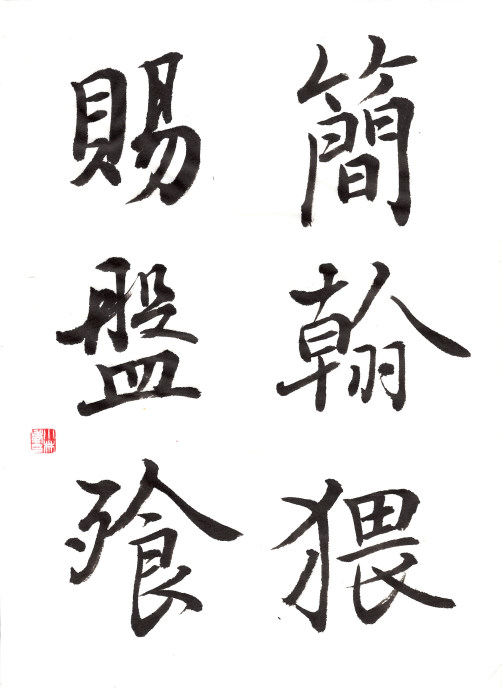 簡翰猥
賜盤飱